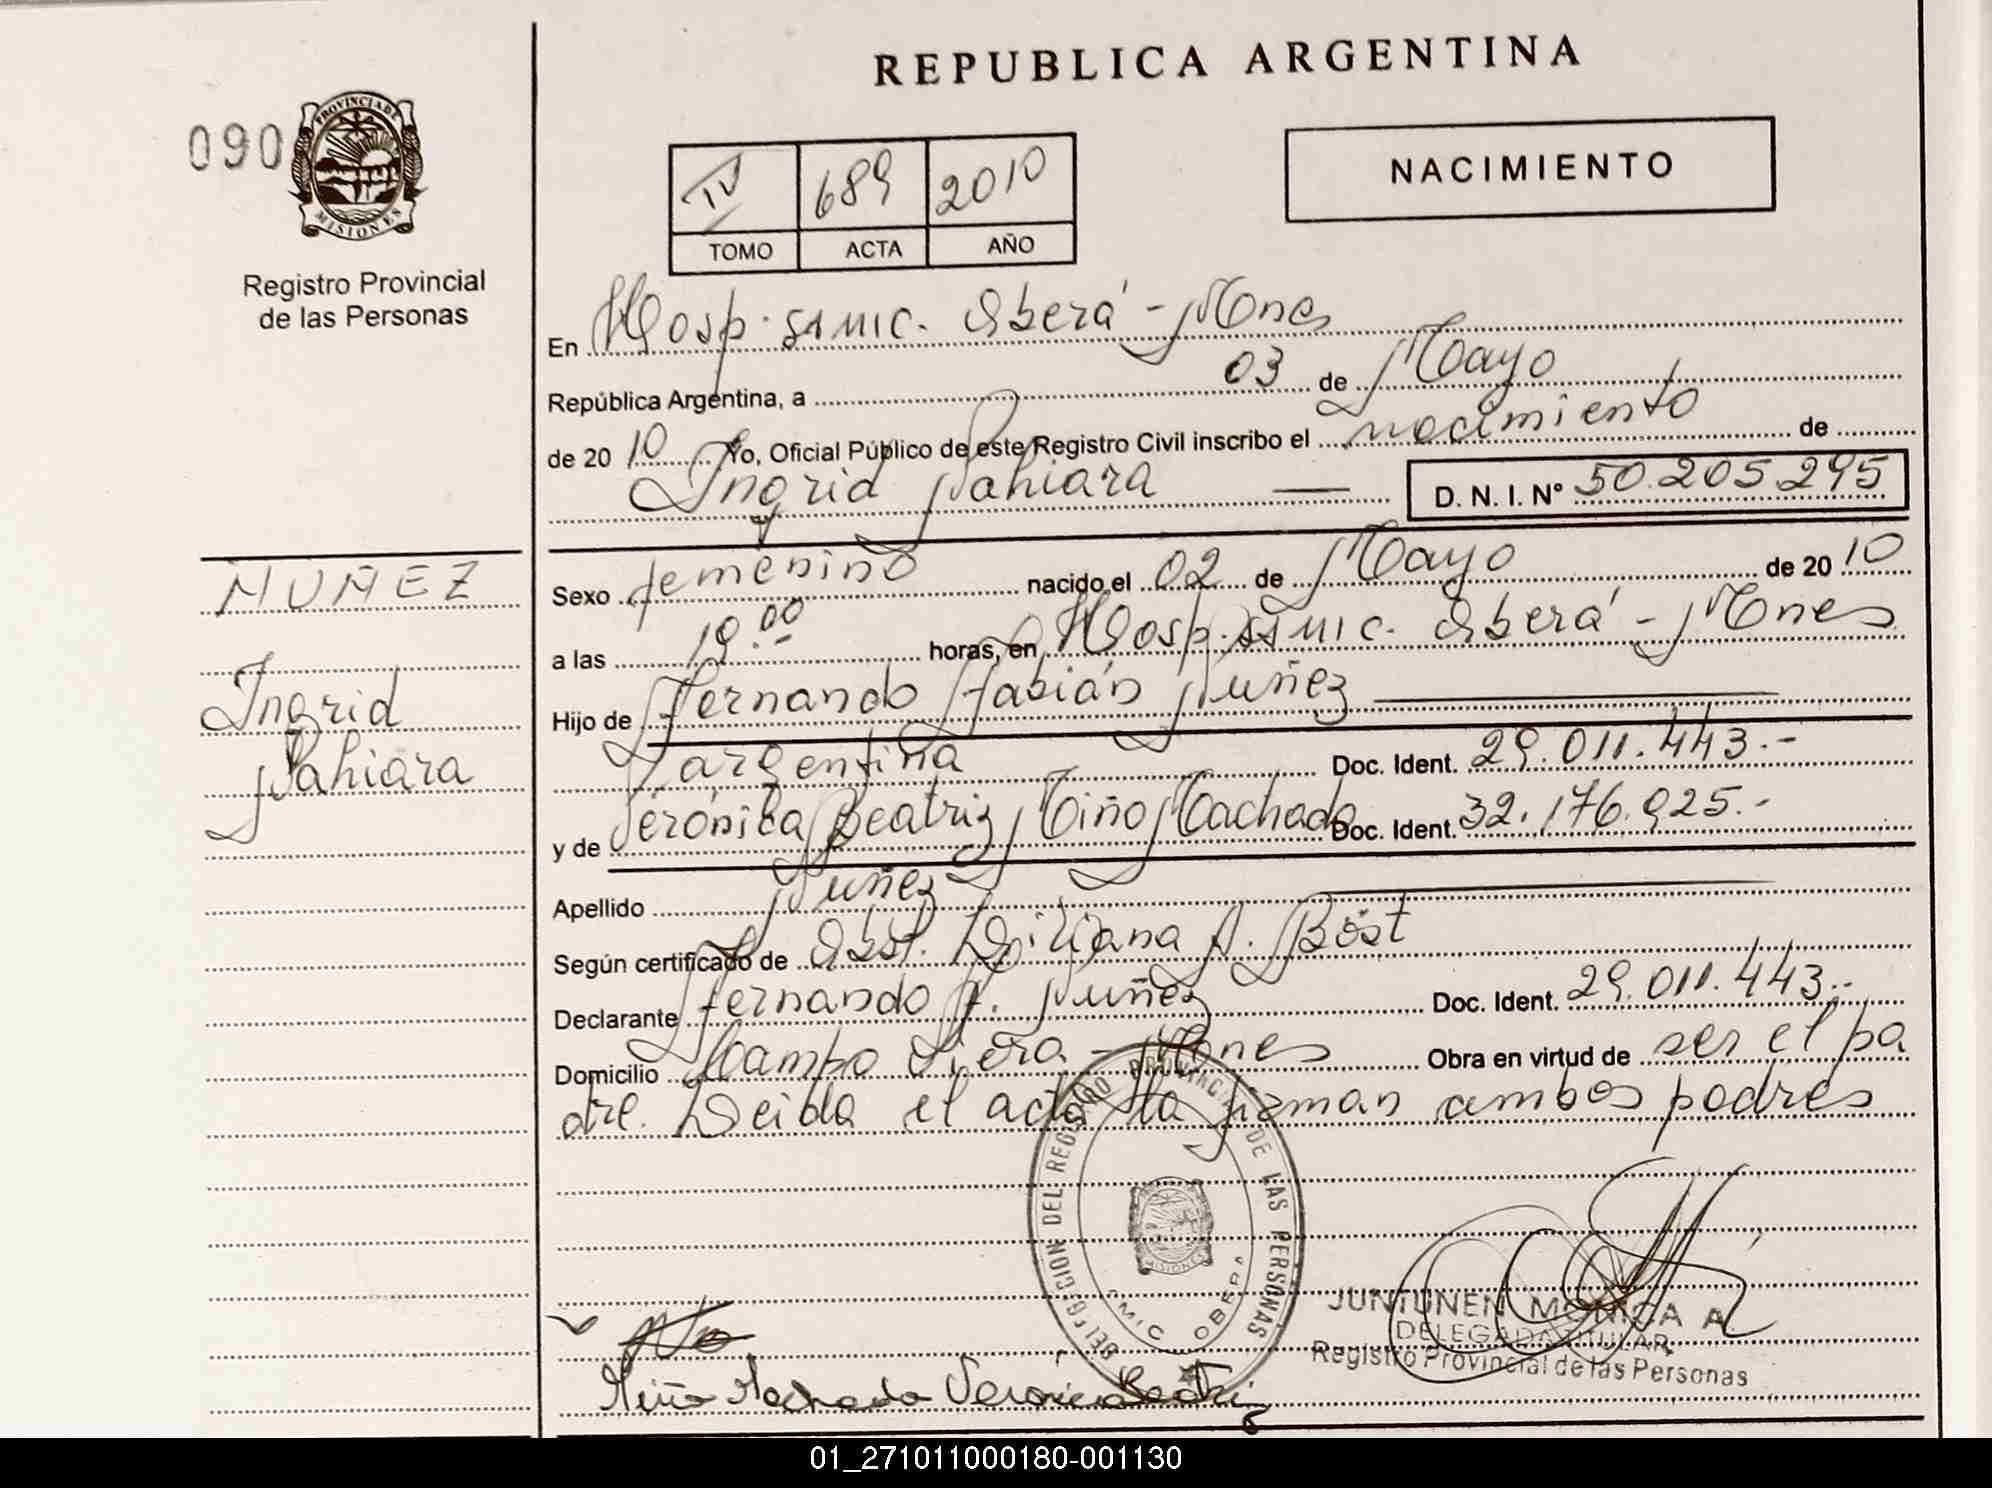 REPUBLICA ARGENTINA
090
PROVINCIA DE
MISIONES
Registro Provincial
de las Personas
IV 689 2010
TOMO ACTA AÑO
NACIMIENTO
En Hosp. SAMIC. Oberá - Mnes
República Argentina, a 03 de Mayo
de 20 10 Yo, Oficial Público de este Registro Civil inscribo el nacimiento de
Ingrid Nahiara — D. N. I. Nº 50.205.295
NUÑEZ
Ingrid
Nahiara
Sexo femenino nacido el 02 de Mayo de 20 10
a las 19.00 horas, en Hosp. SAMIC. Oberá - Mnes
Hijo de Fernando Fabián Nuñez
argentina Doc. Ident. 29.011.443.-
y de Verónica Beatriz Miño Machado Doc. Ident. 32.176.925.-
Apellido Nuñez
Según certificado de Obst. Liliana A. Böst
Declarante Fernando F. Nuñez Doc. Ident. 29.011.443.-
Domicilio Campo Viera - Mnes Obra en virtud de ser el pa
dre. Leida el acta la firman ambos padres
DELEGACION DEL REGISTRO PROVINCIAL DE LAS PERSONAS
MISIONES
SAMIC OBERA
JUNTUNEN MONICA A
DELEGADA TITULAR
Registro Provincial de las Personas
Miño Machado Veronica Beatriz
01_271011000180-001130